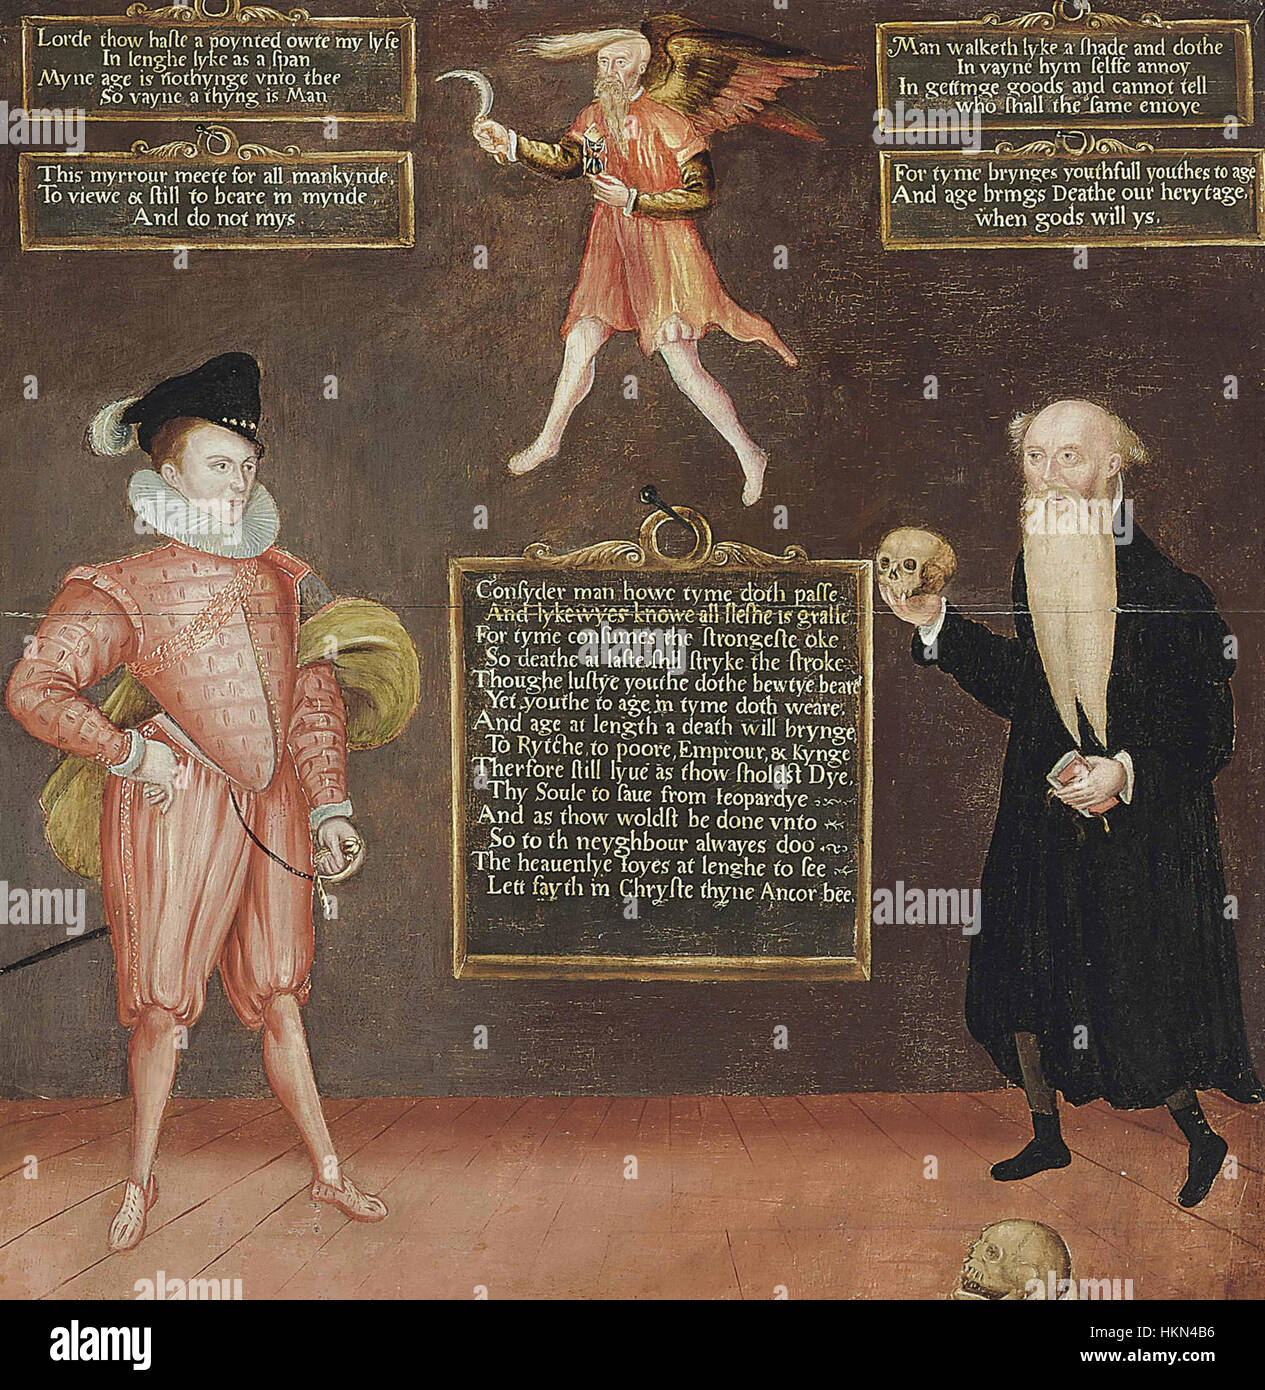 Lorde thow haste a poynted owte my lyfe
In lenghe lyke as a span
Myne age is nothynge vnto thee
So vayne a thyng is Man
This myrrour meete for all mankynde,
To viewe & still to beare in mynde,
And do not mys.
Man walketh lyke a shade and dothe
In vayne hym selffe annoy
In gettinge goods and cannot tell
who shall the same enioye
For tyme brynges youthfull youthes to age
And age brings Deathe our herytage,
when gods will ys.
Consyder man howe tyme doth passe
And lykewyes knowe all fleshe is grasse
For tyme consumes the strongeste oke
So deathe at laste shll stryke the stroke
Thoughe lustye youthe dothe bewtye beare
Yet youthe to age in tyme doth weare,
And age at length a death will brynge
To Rytche, to poore, Emprour, & Kynge
Therfore still lyue as thow sholdst Dye,
Thy Soule to saue from Ieopardye
And as thow woldst be done vnto
So to th neyghbour alwayes doo
The heauenlye Ioyes at lenghe to see
Lett fayth in Chryste thyne Ancor bee.
alamy
Image ID: HKN4B6
www.alamy.com